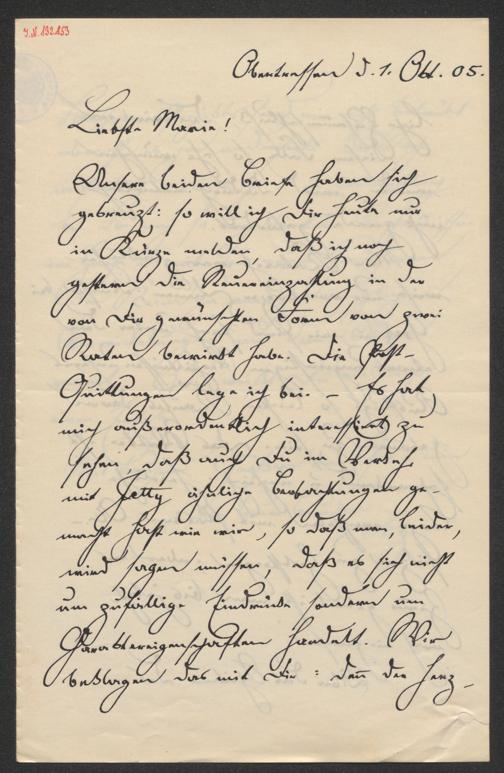 J.N. 192.153
Obertressen d. 1. Okt. 05.
Liebste Marie!
Unsere beiden Briefe haben sich
gekreuzt: so will ich Dir heute nur
in Kürze melden, daß ich noch
gestern die Steuereinzahlung in der
von Dir gewünschten Form von zwei
Raten bewirkt habe. Die Post-
Quittungen lege ich bei. – Es hat
mich außerordentlich interessiert, zu
sehen, daß auch Du im Verkehr
mit Jetty ähnliche Beobachtungen ge-
macht hast wie wir, so daß man, leider,
wird sagen müssen, daß es sich nicht
um zufällige Eindrücke sondern um
Charaktereigenschaften handelt. Wir
beklagen das mit Dir: den̄ der Herz-